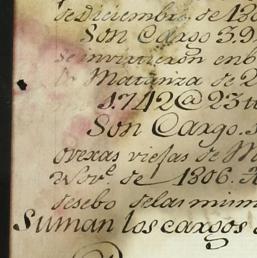 de Diciembre de 180
Son Cargo 3.9
se invirtieron en 6
Matanza de 2
1.742@23
Son Cargo.
ovexas viejas de M
Nov.e de 1806.
desebo delas mism
Suman los cargos